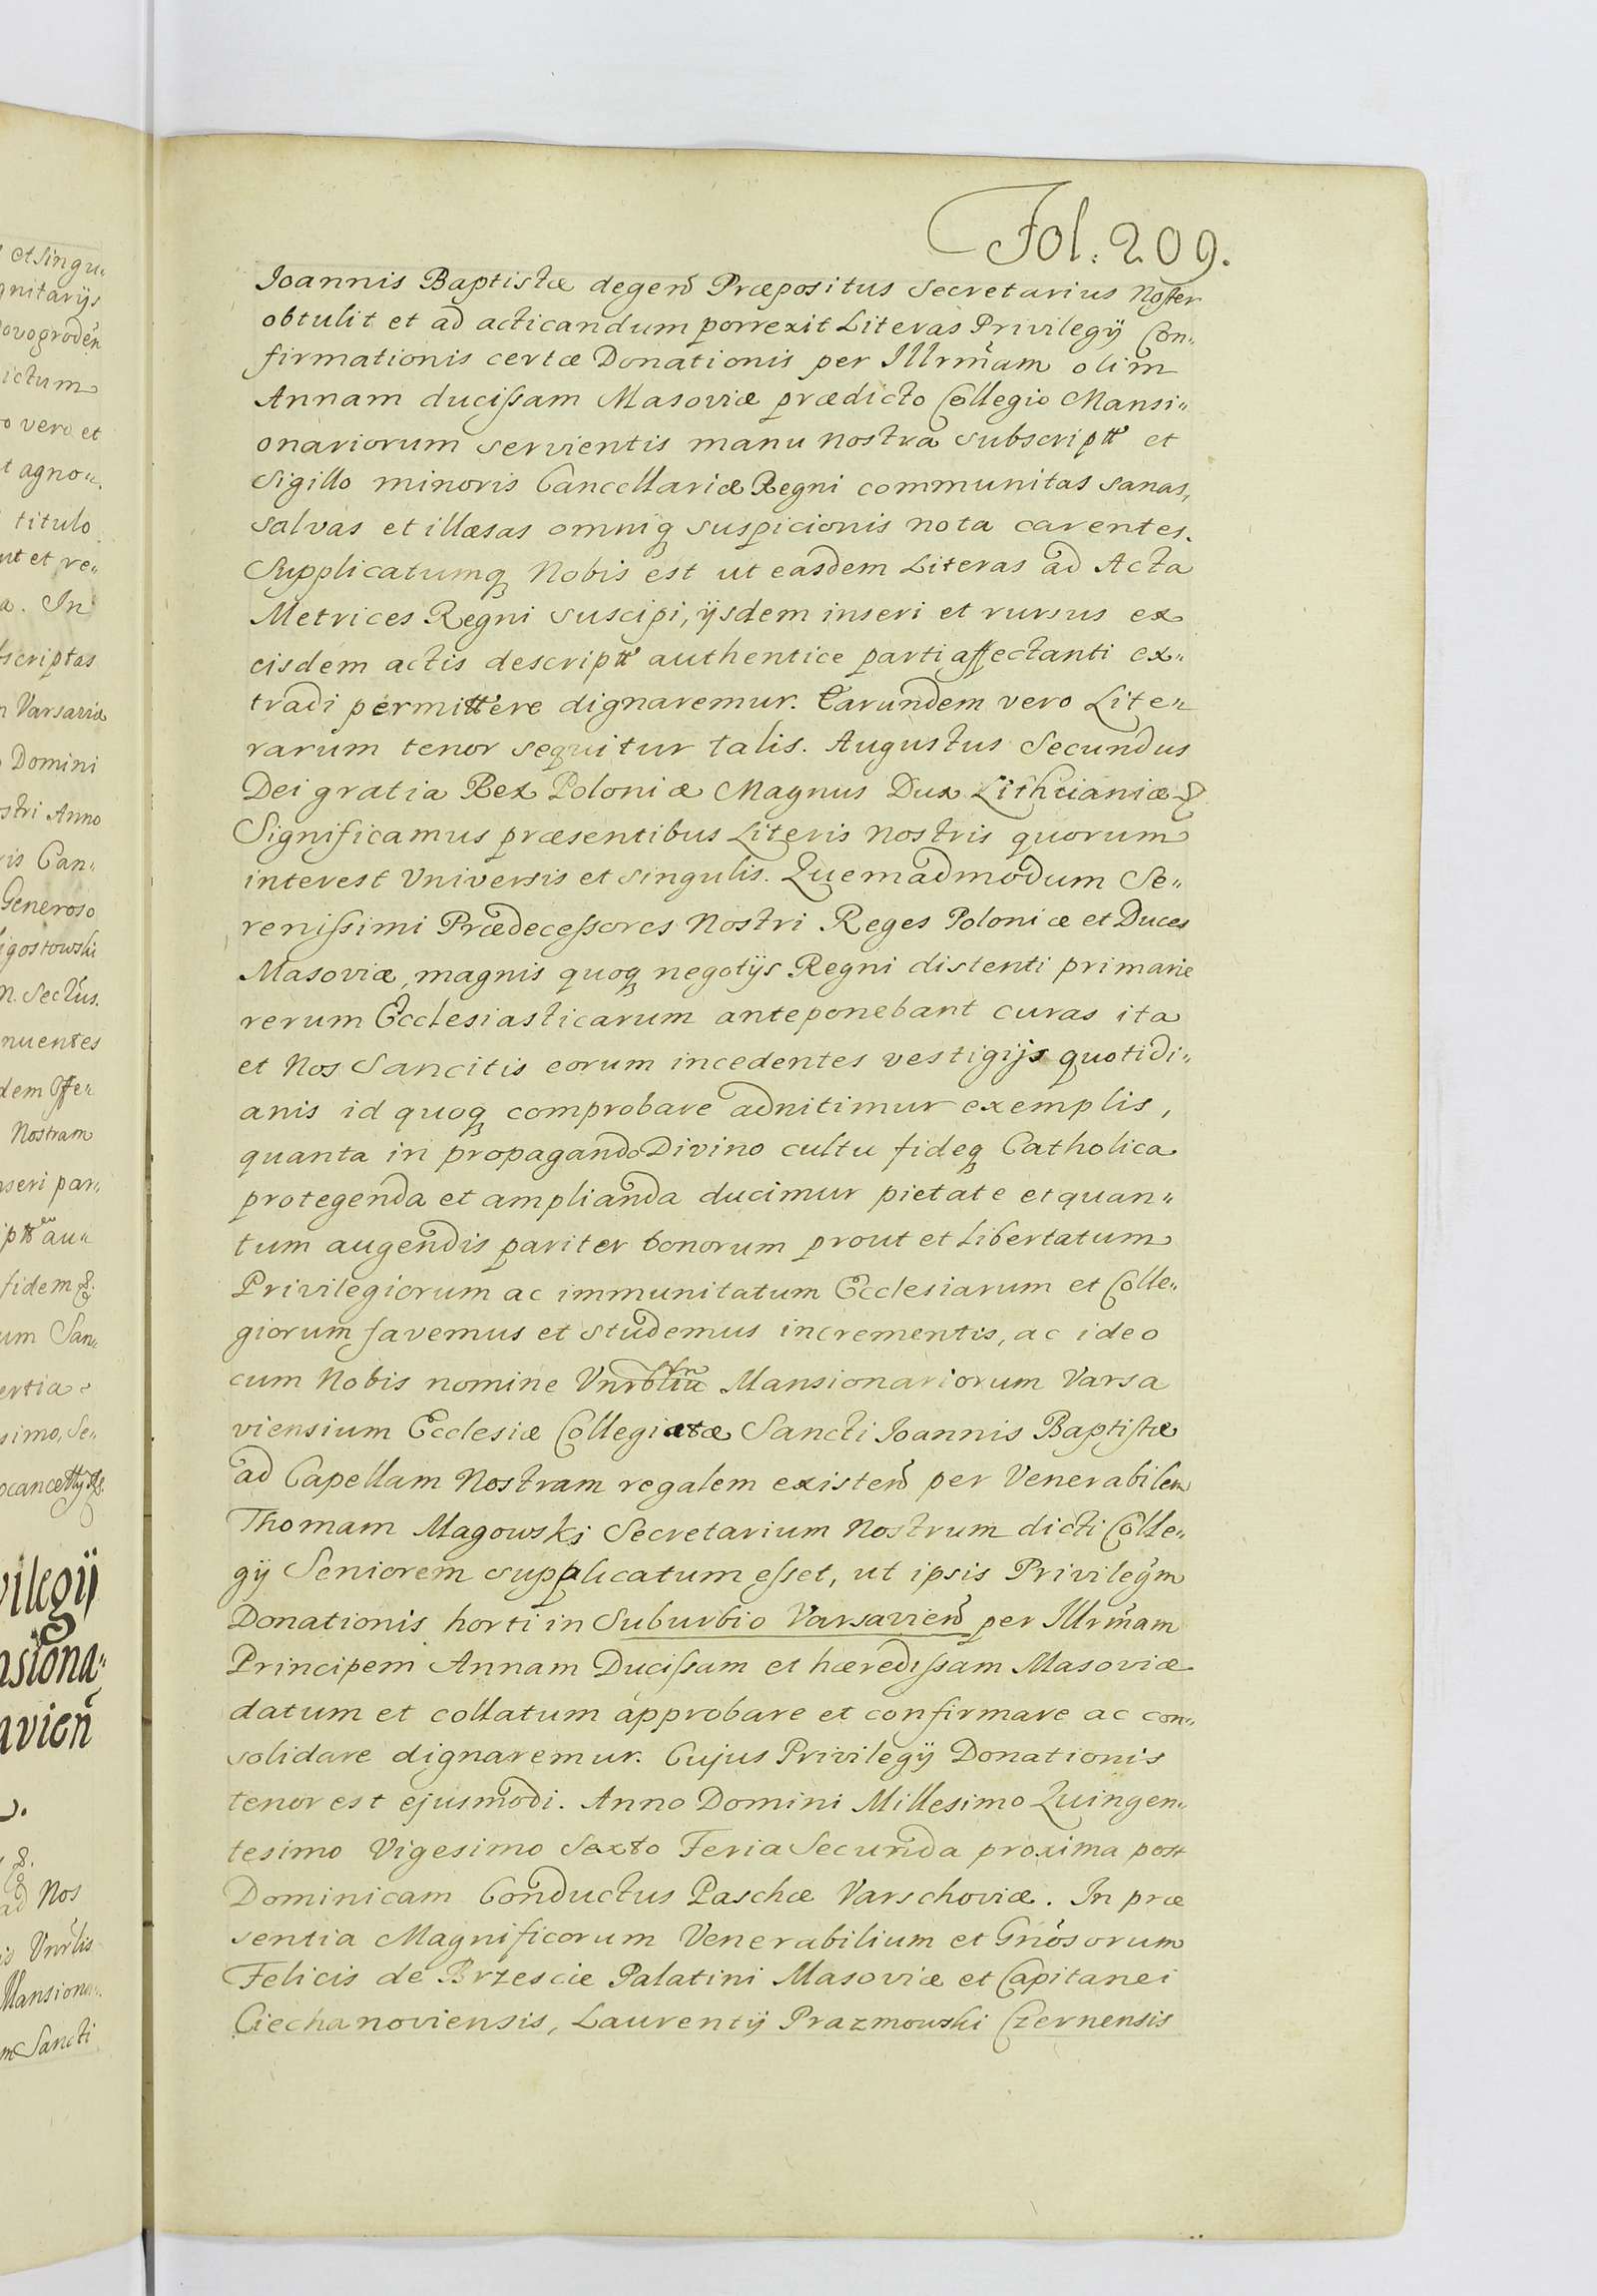 Fol. 209.
Joannis Baptistæ degen̄ Præpositus Secretarius Noster
obtulit et ad acticandum porrexit Literas Privilegij Con„
firmationis certæ Donationis per Illrm̃am olim
Annam ducissam Masoviæ prædicto Collegio Mansi„
onariorum servientis manu nostra subscriptt et
Sigillo minoris Cancellariæ Regni communitas sanas,
salvas et illæsas omniq suspicionis nota carentes.
Supplicatumq Nobis est ut easdem Literas ad Acta
Metrices Regni suscipi, ijsdem inseri et rursus ex
eisdem actis descriptt authentice parti affectanti ex„
tradi permittere dignaremur. Earundem vero Lite„
rarum tenor sequitur talis. Augustus Secundus
Dei gratia Rex Poloniæ Magnus Dux Lithuaniæ &
Significamus præsentibus Literis nostris quorum
interest Universis et singulis. Quemadmodum Se„
renissimi Prædecessores Nostri Reges Poloniæ et Duces
Masoviæ, magnis quoq negotijs Regni distenti primarie
rerum Ecclesiasticarum anteponebant curas ita
et Nos Sancitis eorum incedentes vestigijs quotidi„
anis id quoq comprobare adnitimur exemplis,
quanta in propagando Divino cultu fideq Catholica
protegenda et amplianda ducimur pietate et quan„
tum augendis pariter bonorum prout et Libertatum
Privilegiorum ac immunitatum Ecclesiarum et Colle„
giorum favemus et studemus incrementis, ac ideo
cum Nobis nomine Mansionariorum Varsa
viensium Ecclesiæ Collegiatæ Sancti Joannis Baptistæ
ad Capellam Nostram regalem existen̄ per Venerabilem
Thomam Magowski Secretarium Nostrum dicti Colle„
gij Seniorem supplicatum esset, ut ipsis Privilegm̃
Donationis horti in Suburbio Varsavien̄ per Illrm̃am
Principem Annam Ducissam et hæredissam Masoviæ
datum et collatum approbare et confirmare ac con„
solidare dignaremur. Cujus Privilegij Donationis
tenor est ejusmodi. Anno Domini Millesimo Quingen„
tesimo Vigesimo Sexto Feria Secunda proxima post
Dominicam Conductus Paschæ Varschoviæ. In præ
sentia Magnificorum Venerabilium et Gnõsorum
Felicis de Brzescie Palatini Masoviæ et Capitanei
Ciechanoviensis, Laurentij Prazmowski Czernensis